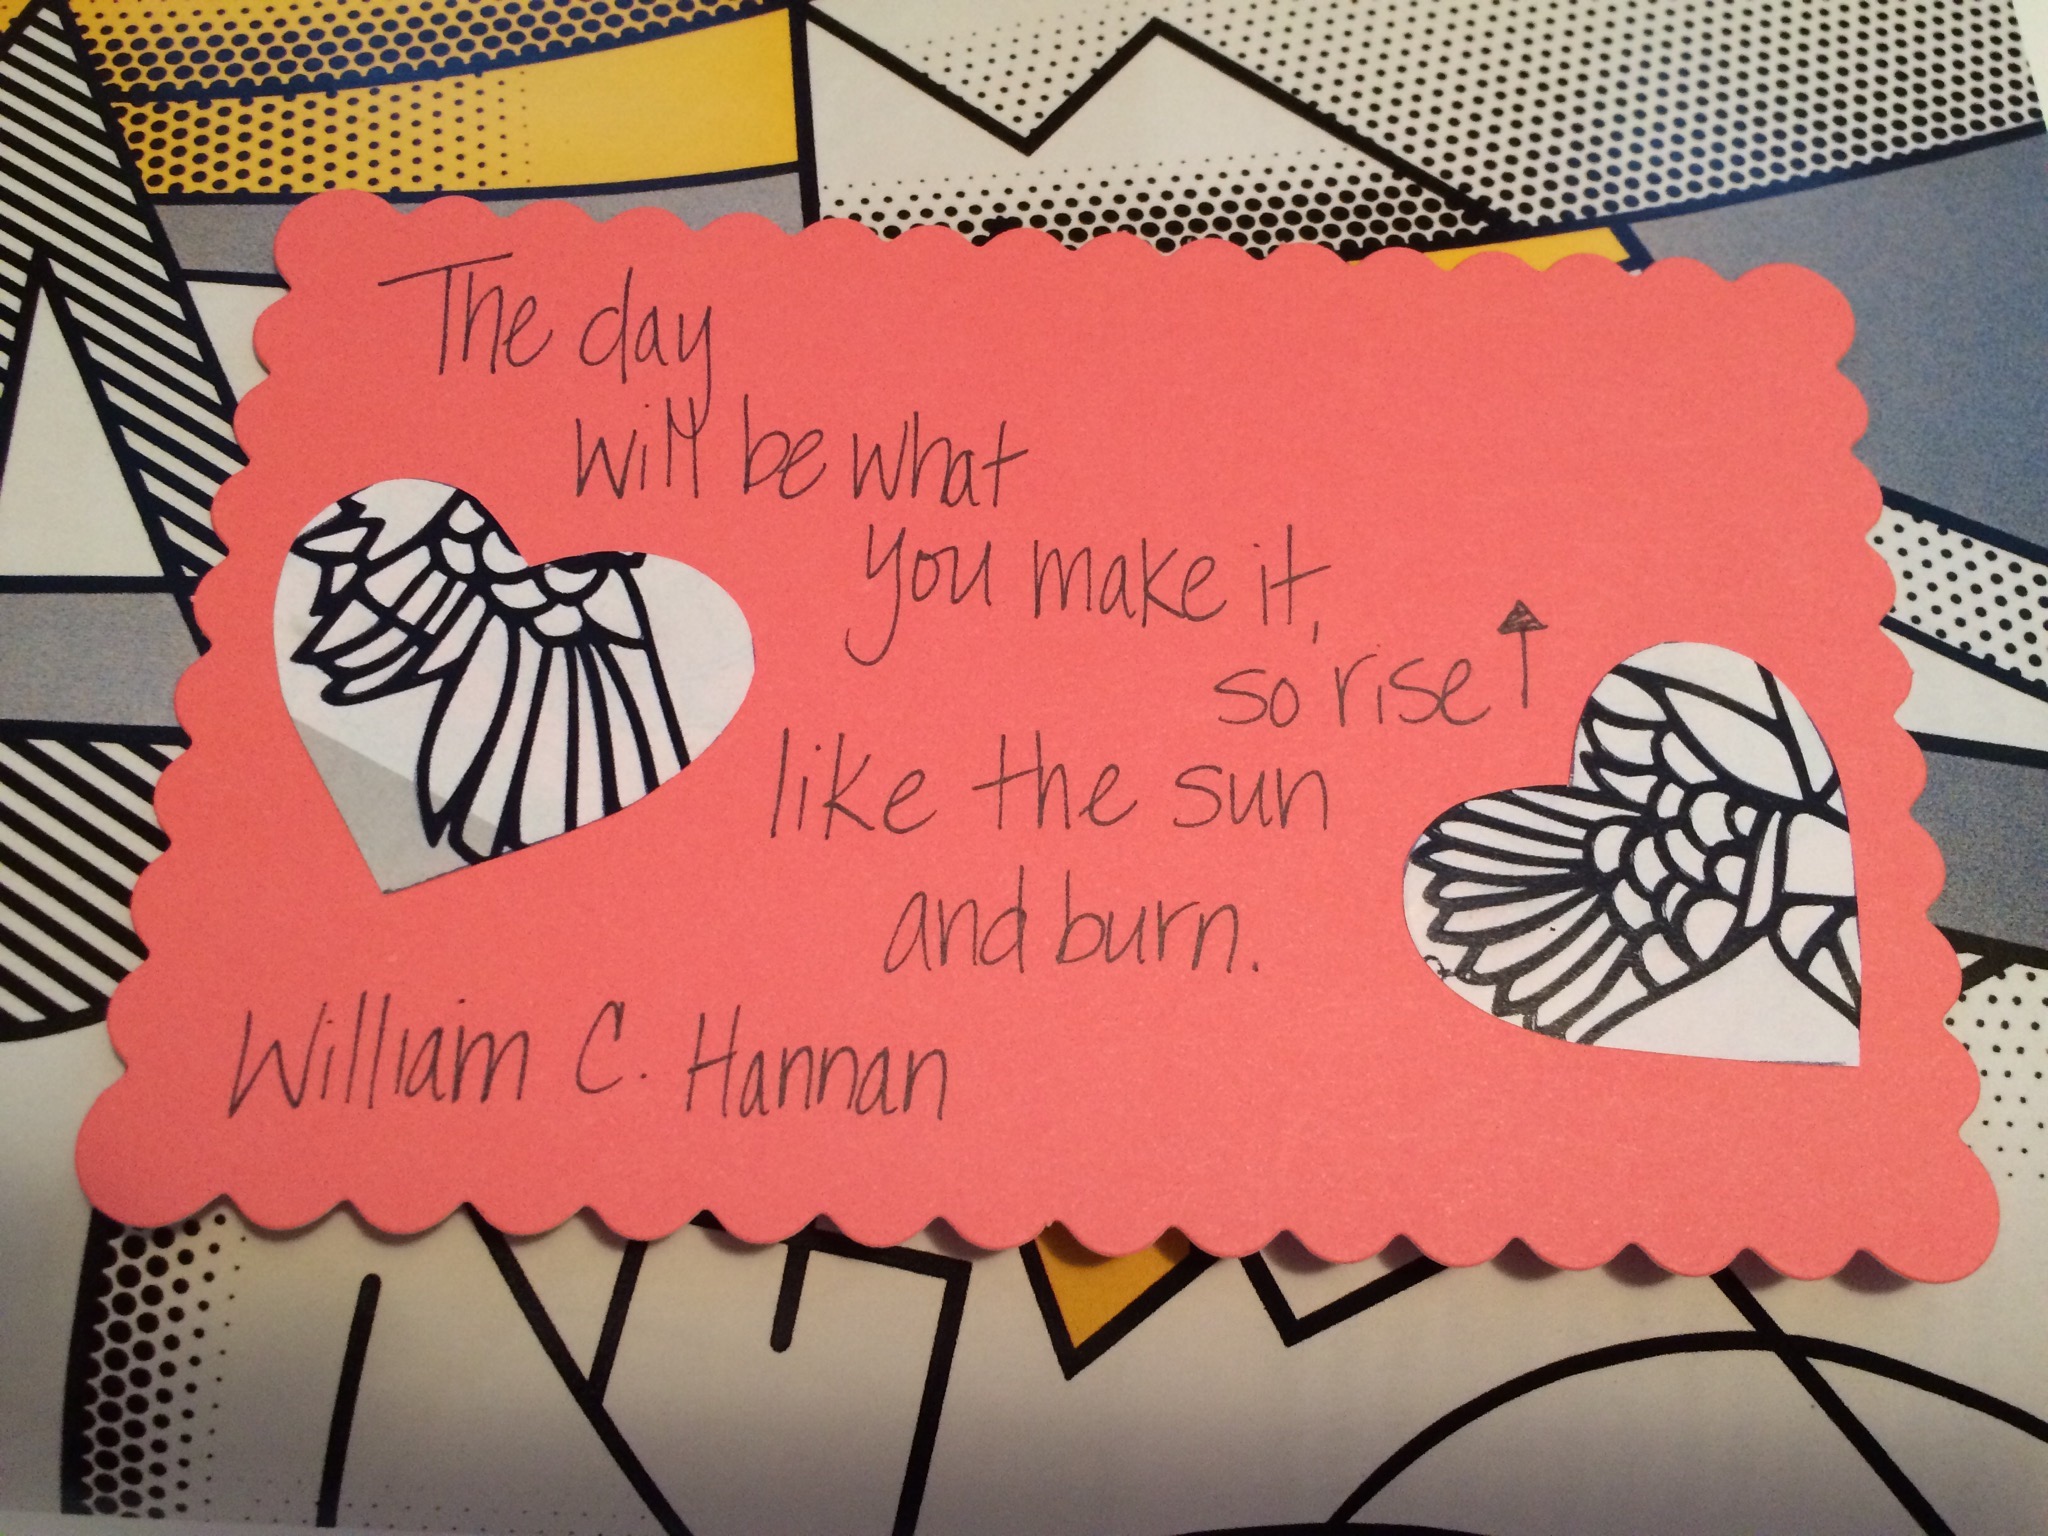 The day
will be what
you make it,
so rise ↑
like the sun
and burn.
William C. Hannan